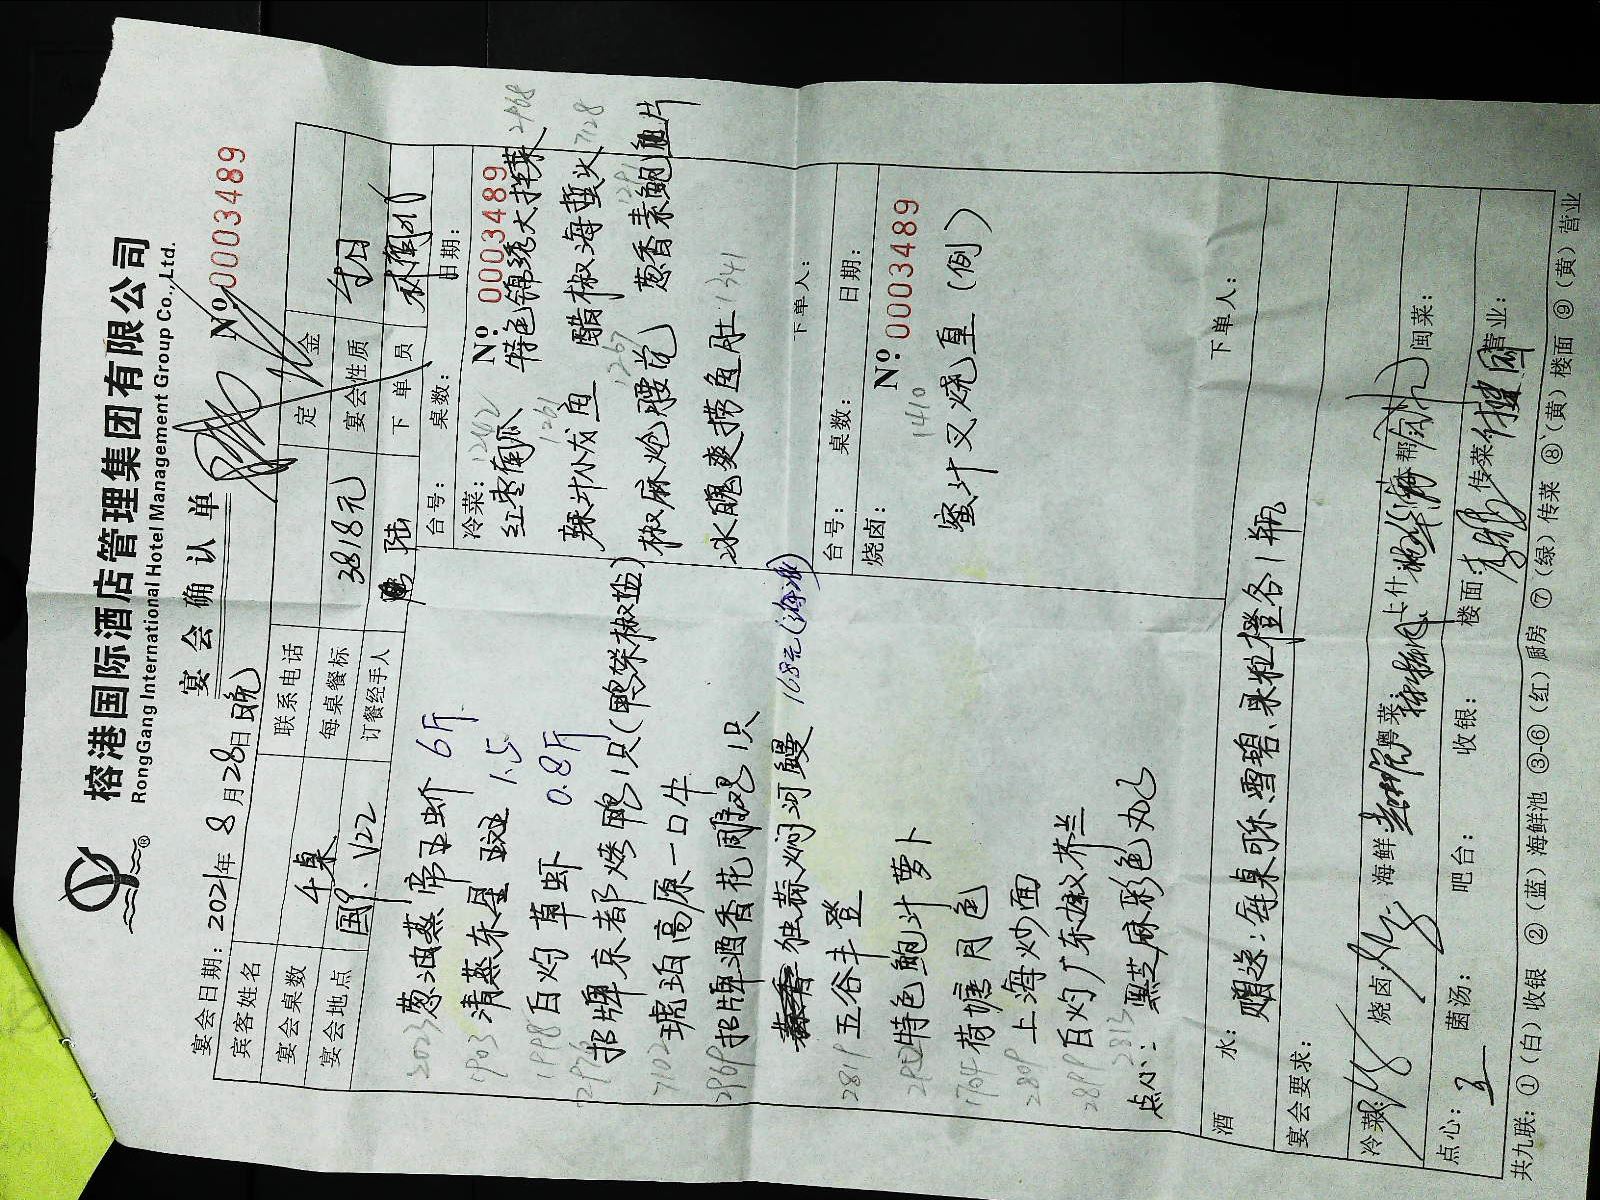 榕港国际酒店管理集团有限公司
RongGang International Hotel Management Group Co.,Ltd.
宴会确认单
宴会日期：2021年8月28日晚
Nº 0003489
宾客姓名 联系电话 定金
宴会桌数 4桌 每桌餐标 3818元 宴会性质 生日
宴会地点 V22 订餐经手人 陆 下单员
葱油蒸帝王蚧 6斤
清蒸东星斑 1.5
白灼草虾 0.8斤
招牌京都烤鸭1只(鸭架椒盐)
7102 琥珀高原一口牛
2969 招牌酒香花雕鸡1只
独蒜焖河鳗 168元
2819 五谷丰登
特色鲍汁萝卜
荷塘月色
2809 上海炒面
2899 白灼广东菜芥兰
点心： 2813 黑芝麻彩色丸
台号： 桌数： 日期：
冷菜： Nº 0003489
红枣南瓜 1242 特色锦绣大拌菜 2968
辣汁小龙鱼 1261 醋椒海蜇头 7128
椒麻炝腰花 1267 葱香素鲍鱼片
冰醋爽捞鱼肚 1341
下单人：
台号： 桌数： 日期：
烧卤： 1410 Nº 0003489
蜜汁叉烧皇(例)
下单人：
酒水： 赠送：每桌可乐、雪碧、果粒橙各1瓶
宴会要求：
冷菜： 烧卤： 海鲜 粤菜 上什 海帮 闽菜：
点心： 菌汤： 吧台： 收银： 楼面： 传菜 营业：
共九联：①(白)收银 ②(蓝)海鲜池 ③-⑥(红)厨房 ⑦(绿)传菜 ⑧(黄)楼面 ⑨(黄)营业